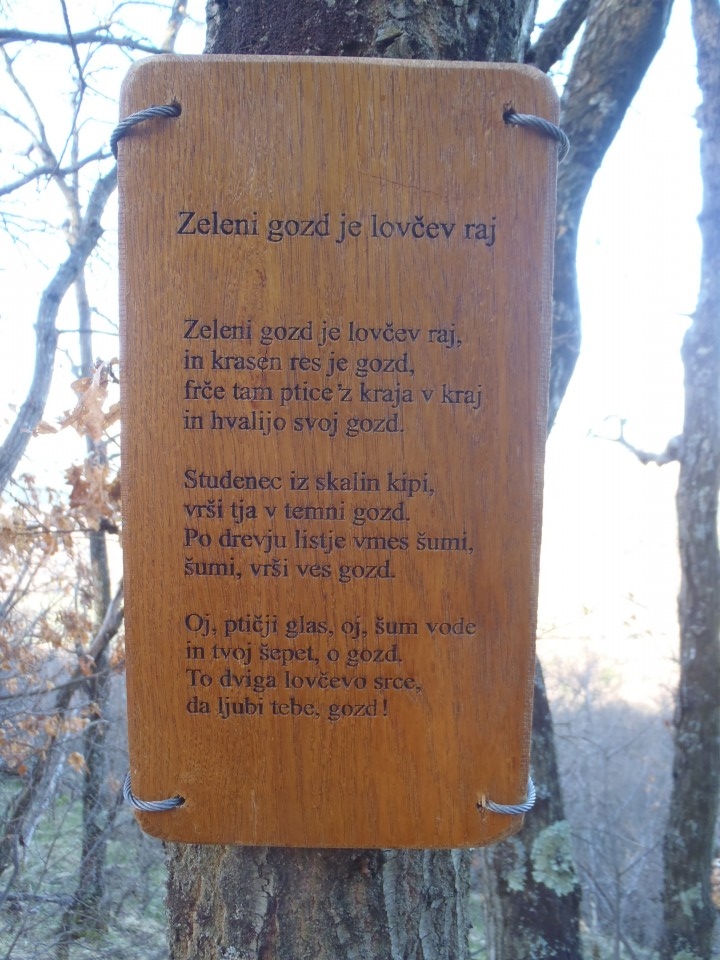 Zeleni gozd je lovčev raj
Zeleni gozd je lovčev raj,
in krasen res je gozd,
frče tam ptice'z kraja v kraj
in hvalijo svoj gozd.
Studenec iz skalin kipi,
vrši tja v temni gozd.
Po drevju listje vmes šumi,
šumi, vrši ves gozd.
Oj, ptičji glas, oj, šum vode
in tvoj šepet, o gozd.
To dviga lovčevo srce,
da ljubi tebe, gozd!